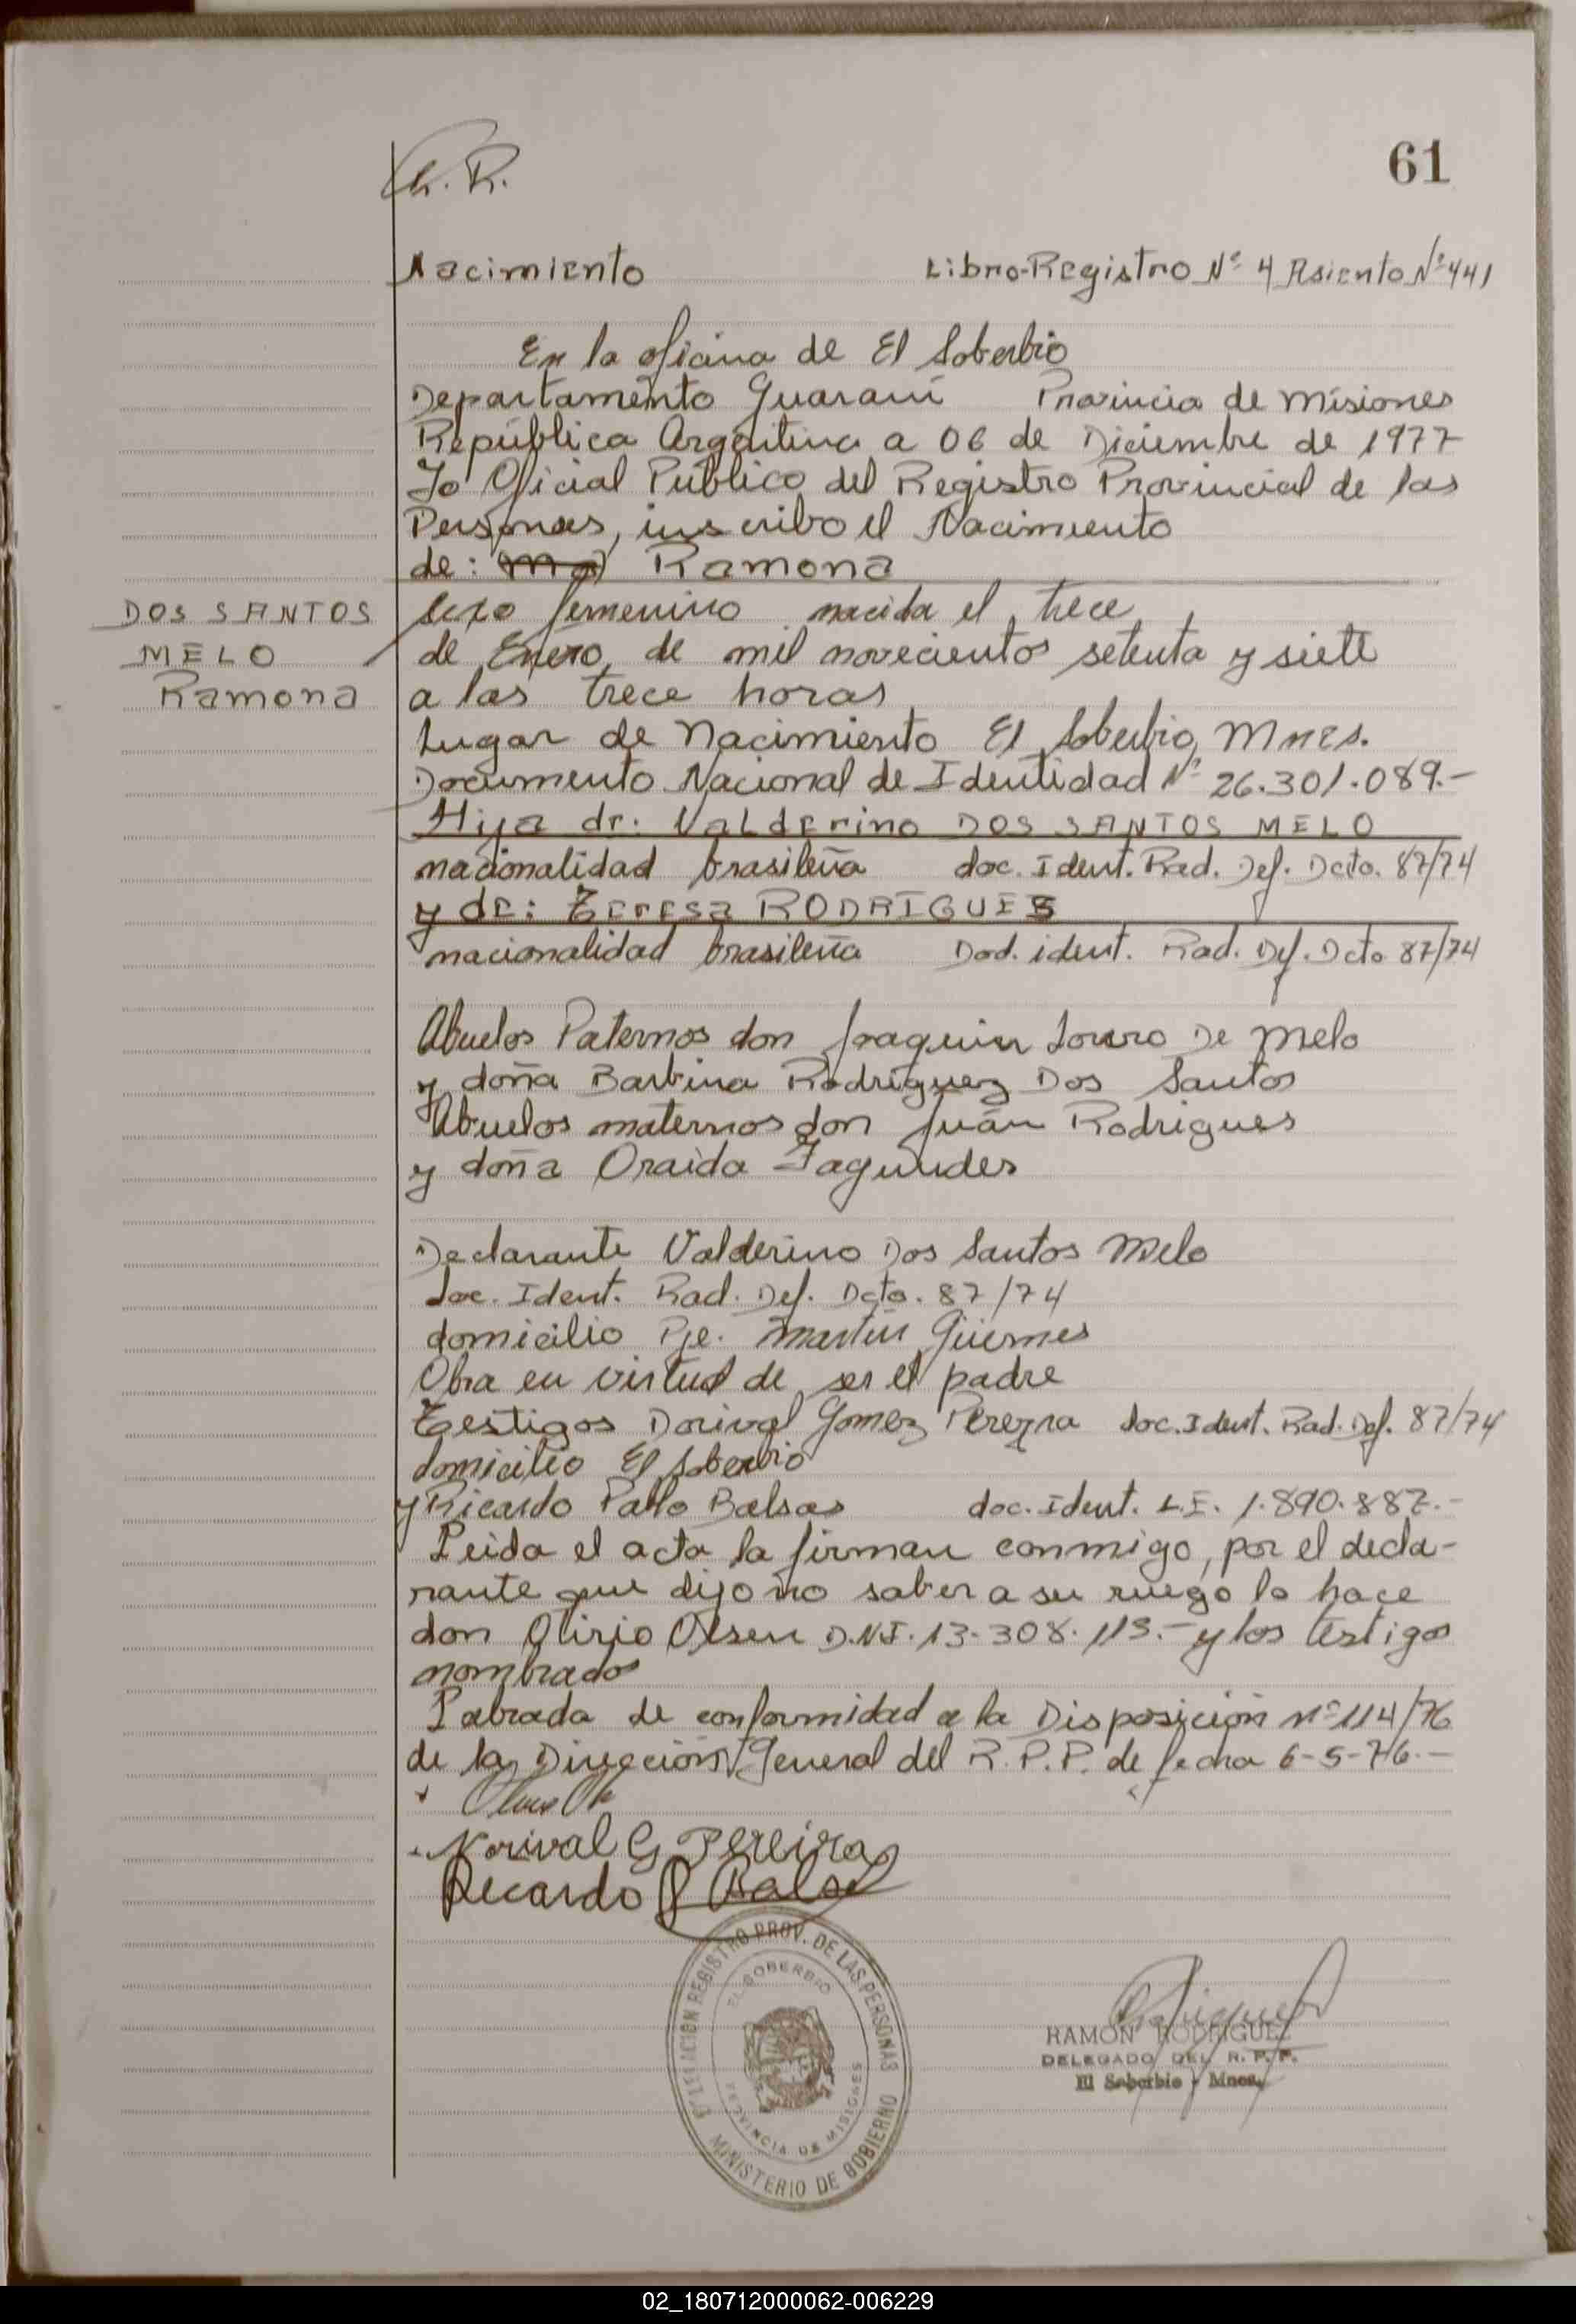 61
Nacimiento Libro-Registro Nº 4 Asiento Nº 441
En la oficina de El Soberbio
Departamento Guaraní Provincia de Misiones
República Argentina a 06 de Diciembre de 1977
Yo Oficial Público del Registro Provincial de las
Personas, inscribo el Nacimiento
de: Ramona
DOS SANTOS
MELO
Ramona
sexo femenino nacida el trece
de Enero de mil novecientos setenta y siete
a las trece horas
Lugar de Nacimiento El Soberbio, Mnes.
Documento Nacional de Identidad Nº 26.301.089.-
Hija de: Valderino DOS SANTOS MELO
nacionalidad brasileña doc. Ident. Rad. Def. Dcto. 87/74
y de: Teresa RODRIGUES
nacionalidad brasileña Dod. ident. Rad. Def. Dcto 87/74
Abuelos Paternos don Joaquin De Melo
y doña Barbina Rodriguez Dos Santos
Abuelos maternos don Juan Rodrigues
y doña Oraida Fagundes
Declarante Valderino Dos Santos Melo
doc. Ident. Rad. Def. Dcto. 87/74
domicilio Pje. Martin Güemes
Obra en virtud de ser el padre
Testigos Dorival Gomez Pereyra doc. Ident. Rad. Def. 87/74
domicilio El Soberbio
y Ricardo Pablo Balsas doc. Ident. L.E. 1.890.887.-
Leida el acta la firman conmigo, por el decla-
rante que dijo no saber a su ruego lo hace
don Olirio Olsen D.N.I. 13-308.113.- y los testigos
nombrados
Labrada de conformidad a la Disposición nº 114/76
de la Dirección General del R.P.P. de fecha 6-5-76.-
Norival G Pereira
Recardo P Balsa
REGISTRO PROV. DE LAS PERSONAS
EL SOBERBIO
PROVINCIA DE MISIONES
MINISTERIO DE GOBIERNO
RAMON RODRIGUEZ
DELEGADO DEL R. P. P.
El Soberbio - Mnes.
02_180712000062-006229